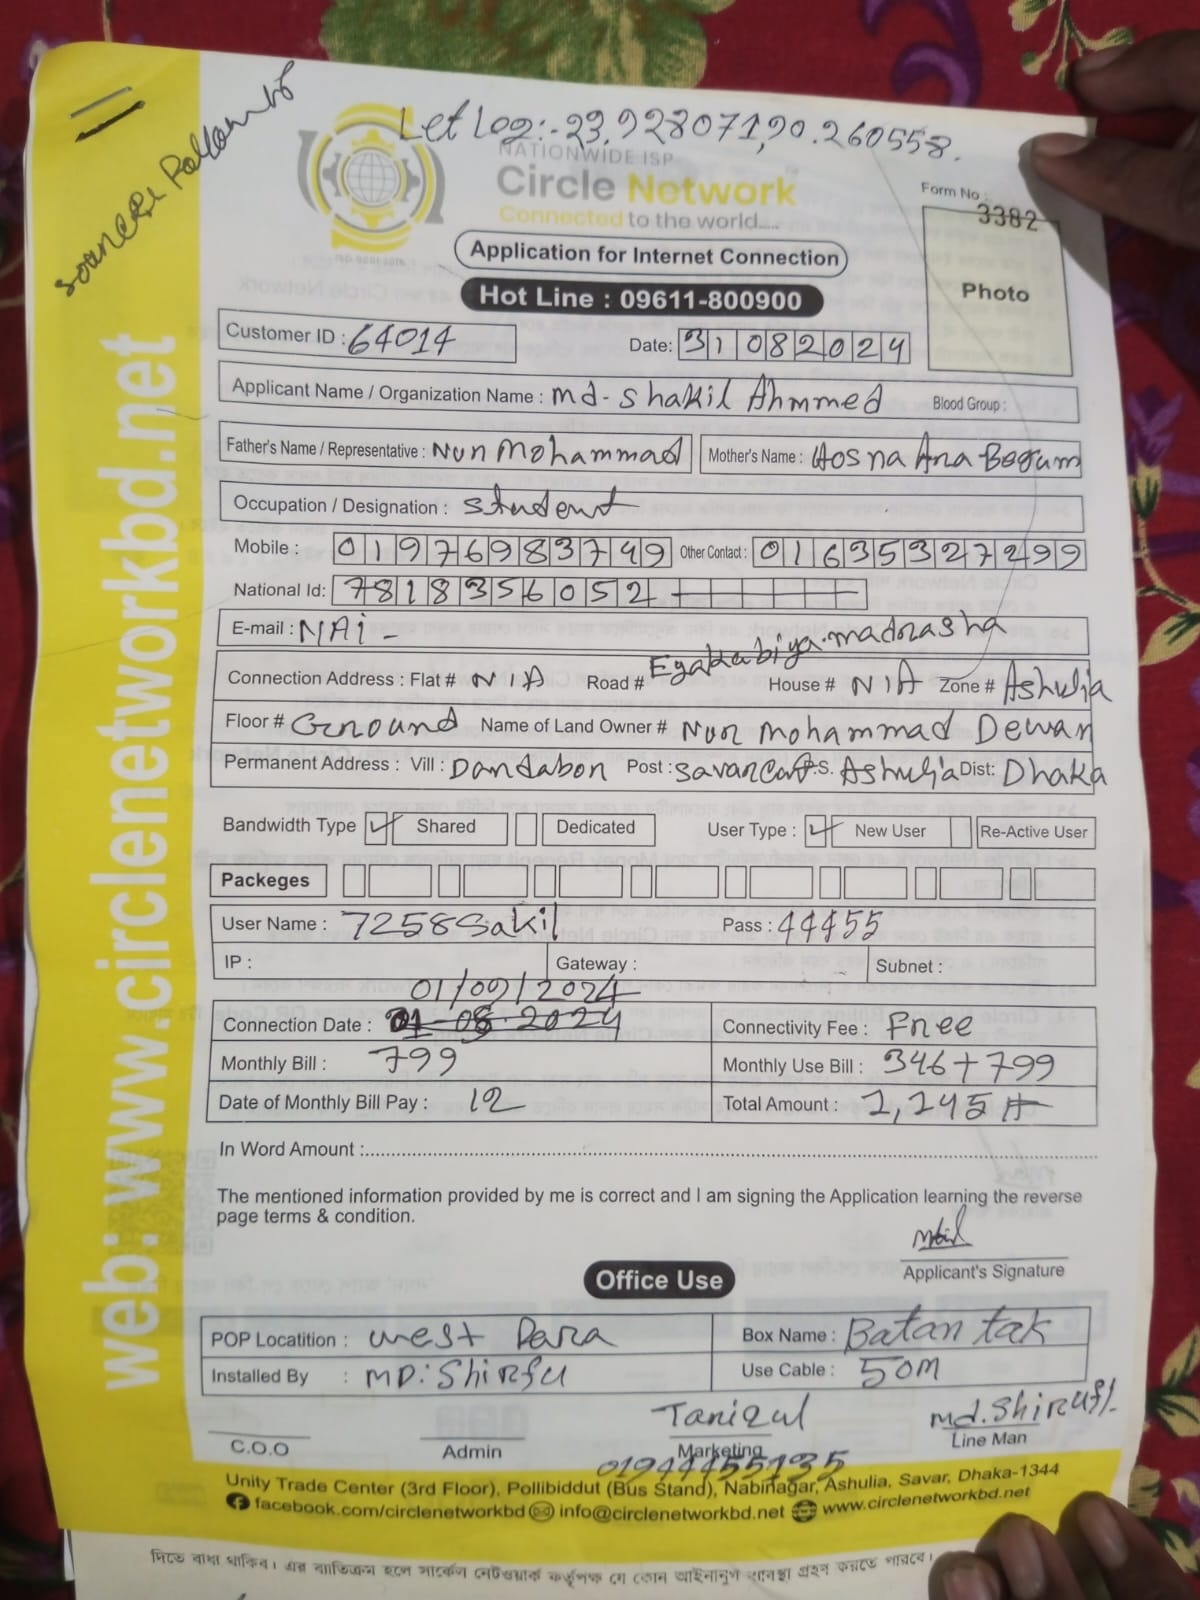 Let Log:- 23.928071,90.260558.
NATIONWIDE ISP
Circle Network
Connected to the world....
Form No :
3382
Application for Internet Connection
Photo
Hot Line : 09611-800900
Customer ID : 64014
Date: 31 08 2024
Applicant Name / Organization Name : Md-Shakil Ahmmed Blood Group :
Father's Name / Representative : Nur Mohammad Mother's Name : Hosna Ara Begum
Occupation / Designation : Student
Mobile : 01976983749 Other Contact : 01635327299
National Id: 7818356052
E-mail : N/A
Connection Address : Flat # N/A Road # madrasha House # N/A Zone # Ashulia
Floor # Ground Name of Land Owner # Nur Mohammad Dewan
Permanent Address : Vill : Dandabon Post : Savar Cant P.S. Ashulia Dist: Dhaka
Bandwidth Type Shared Dedicated User Type : New User Re-Active User
Packeges
User Name : 7258Sakil Pass : 44455
IP : Gateway : Subnet :
01/09/2024
Connection Date : 01-08-2024 Connectivity Fee : Free
Monthly Bill : 799 Monthly Use Bill : 346+799
Date of Monthly Bill Pay : 12 Total Amount : 1,145
In Word Amount :
The mentioned information provided by me is correct and I am signing the Application learning the reverse
page terms & condition.
Applicant's Signature
Office Use
POP Locatition : West Para Box Name : Batan tak
Installed By : MD: Use Cable : 50M
C.O.O Admin Marketing Line Man
01944455135
Unity Trade Center (3rd Floor), Pollibiddut (Bus Stand), Nabinagar, Ashulia, Savar, Dhaka-1344
facebook.com/circlenetworkbd info@circlenetworkbd.net www.circlenetworkbd.net
web: www.circlenetworkbd.net
দিতে বাধ্য থাকিব। এর ব্যতিক্রম হলে সার্কেল নেটওয়ার্ক কর্তৃপক্ষ যে কোন আইনানুগ ব্যবস্থা গ্রহন করতে পারবে।